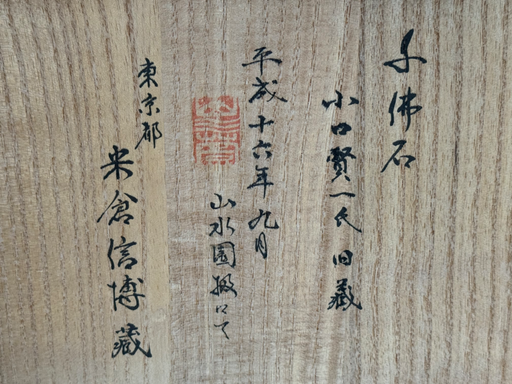 千佛石
小口賢一氏旧藏
平成十六年九月
山水園扱にて
東京都
米倉信博藏